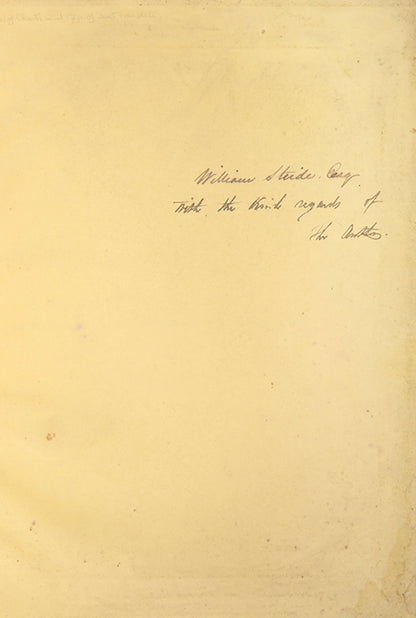 William Steide. Esq
With the Kind regards of
the Author.